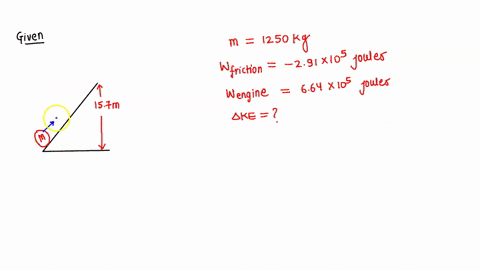 Given
m = 1250 kg
Wfriction = -2.91 × 10⁵ joules
Wengine = 6.64 × 10⁵ joules
ΔKE = ?
15.7m
m